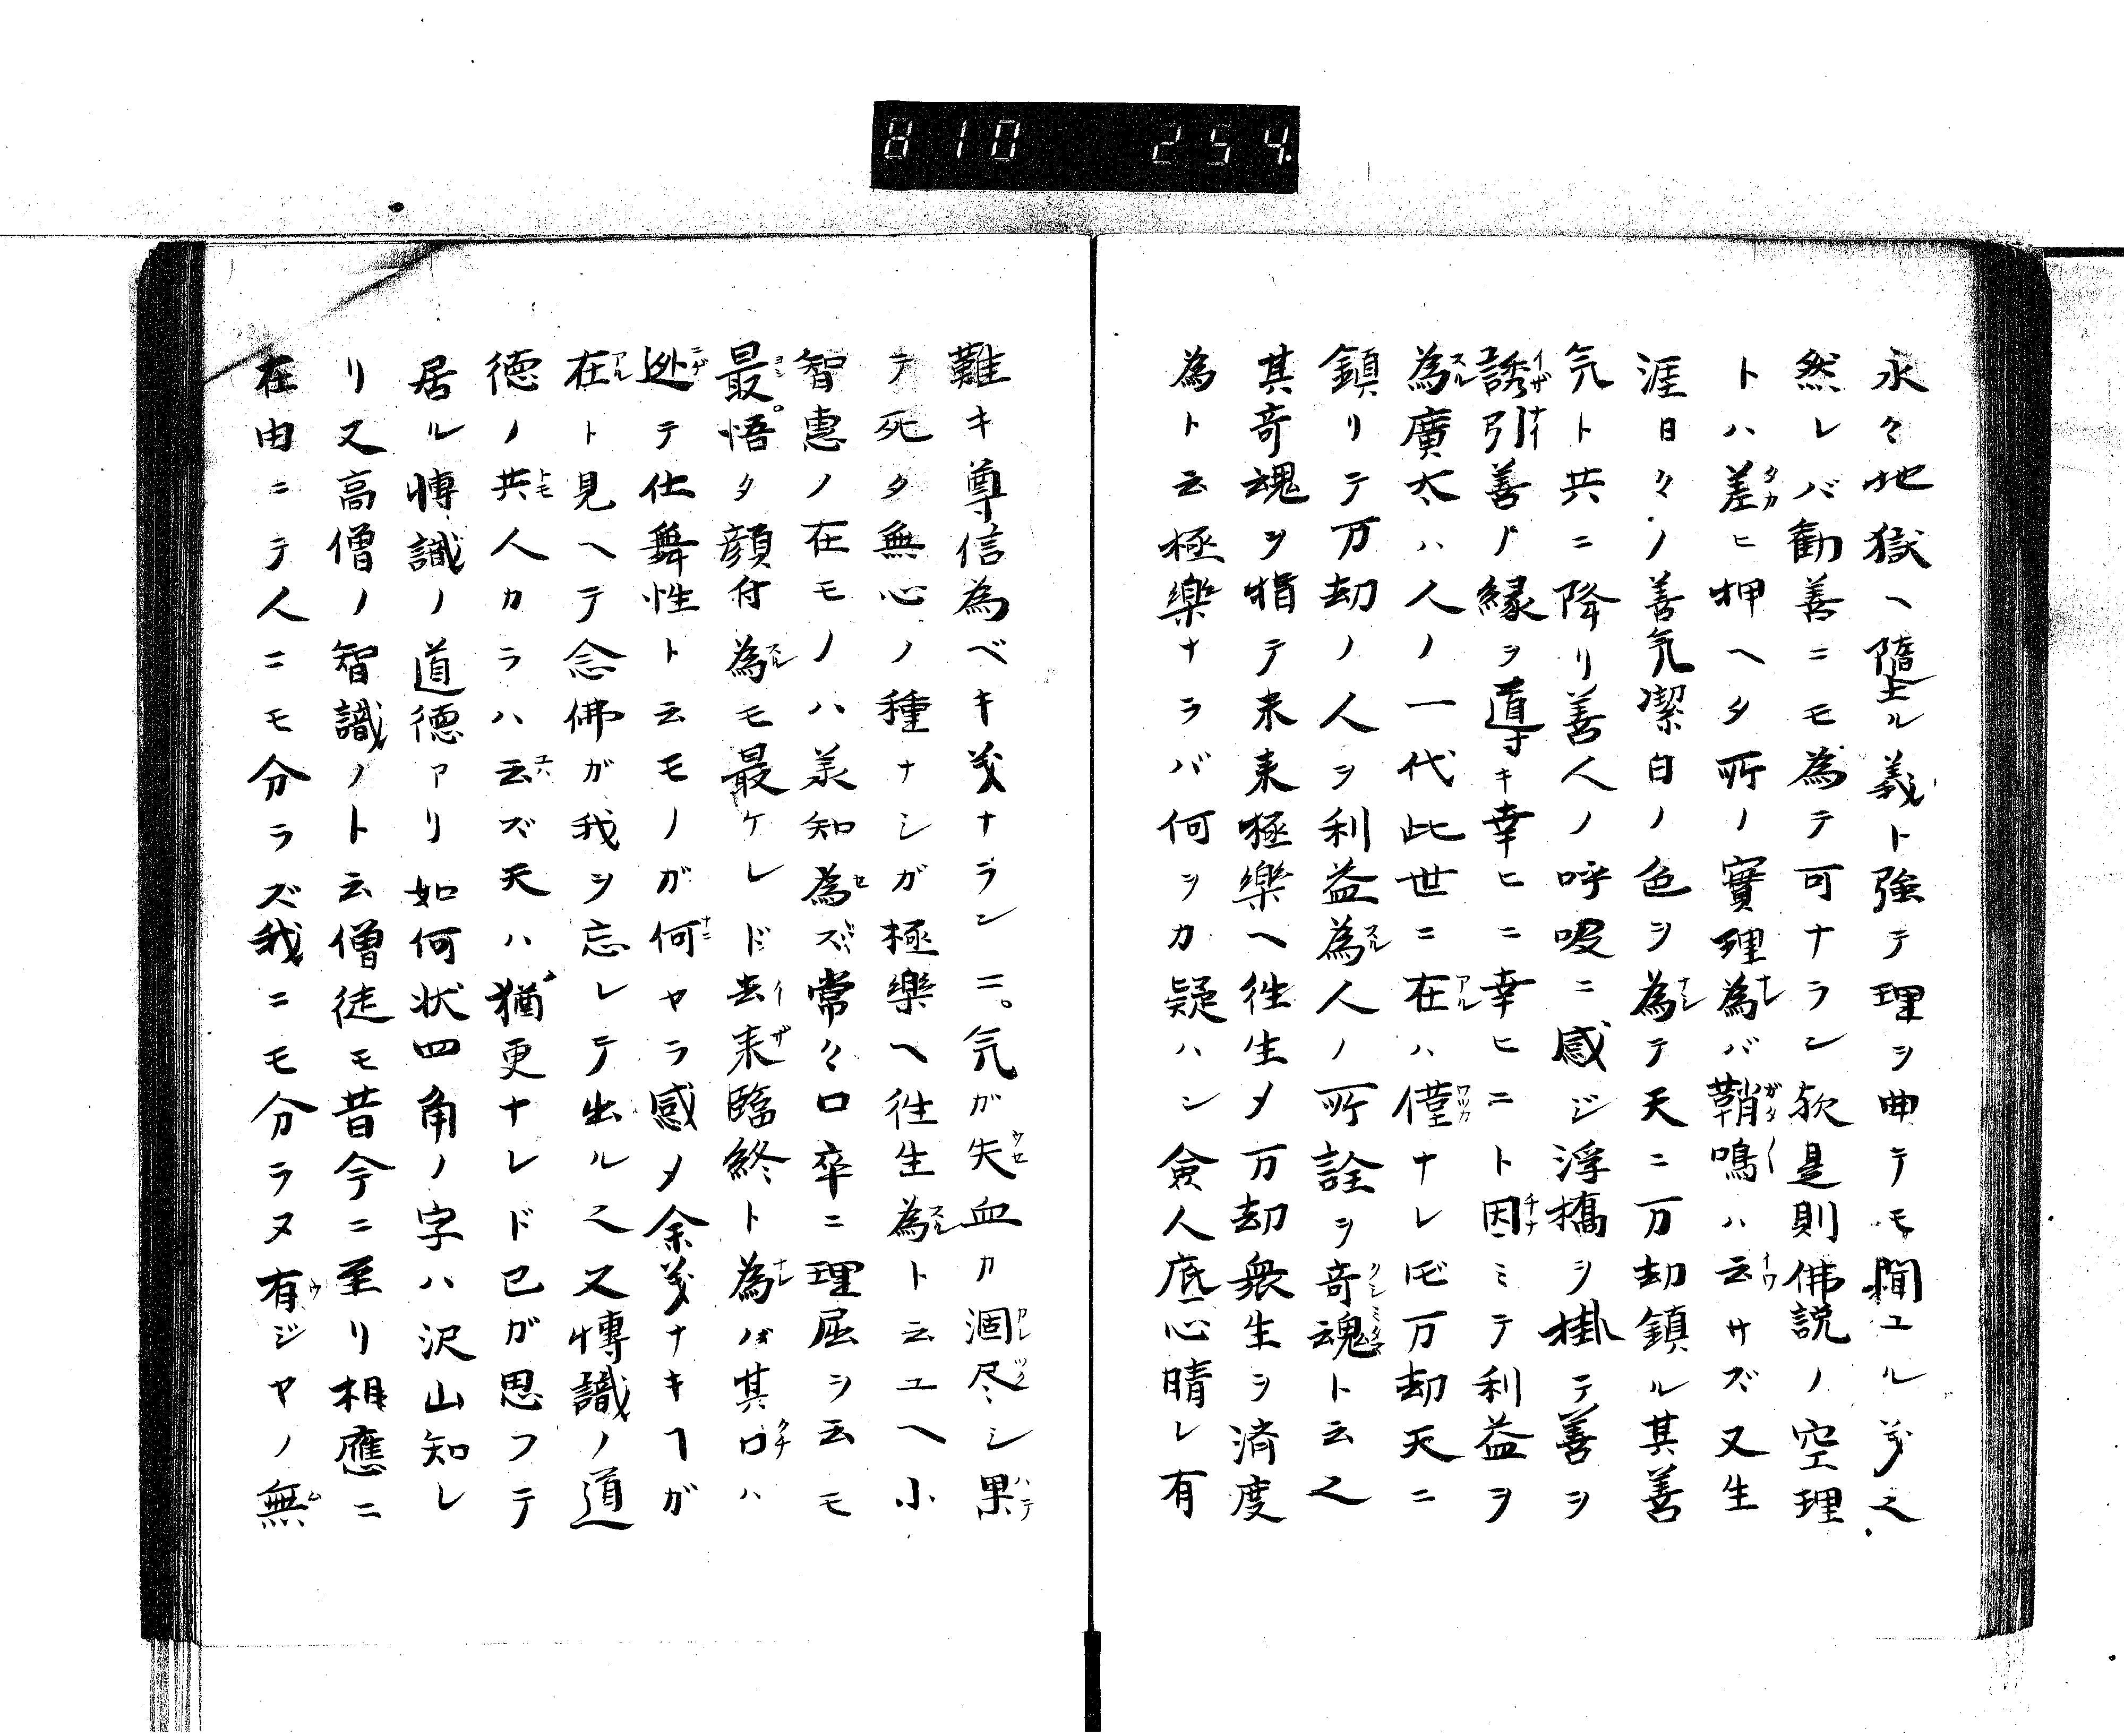 810 254.
永々地獄ヘ墮ル義ト強テ理ヲ曲テモ聞ユル㕝也
然レバ勸善ニモ為テ可ナラン欤是則佛説ノ空理
トハ差ヒ押ヘタ所ノ實理為バ鞘鳴ハ云サズ又生
涯日々ノ善氣潔白ノ色ヲ為テ天ニ万劫鎮ル其善
氣ト共ニ降リ善人ノ呼吸ニ感ジ浮橋ヲ掛テ善ヲ
誘引善ノ縁ヲ導キ幸ヒニ幸ヒニト因ミテ利益ヲ
為廣太ハ人ノ一代此世ニ在ハ僅ナレ𪜈万劫天ニ
鎮リテ万劫ノ人ヲ利益為人ノ所詮ヲ奇魂ト云也
其奇魂ヲ指テ未来極樂ヘ徃生メ万劫衆生ヲ済度
為ト云極樂ナラバ何ヲカ疑ハン僉人底心晴レ有
難キ尊信為ベキ㕝ナランニ。氣が失血カ涸尽シ果
テ死タ無心ノ種ナシガ極樂ヘ徃生為ト云ユヘ小
智恵ノ在モノハ羕知為ズ常々口卒ニ理屈ヲ云モ
最。悟タ顔付為モ最ケレド去来臨終ト為バ其口ハ
迯テ仕舞性ト云モノガ何ヤラ感メ余㕝ナキヿガ
在ト見ヘテ念佛ガ我ヲ忘レテ出ル也又博識ノ道
徳ノ共人カラハ云ズ天ハ猶更ナレド己ガ思フテ
居ル博識ノ道徳アリ如何状四角ノ字ハ沢山知レ
リ又高僧ノ智識ノト云僧徒モ昔今ニ至リ相應ニ
在由ニテ人ニモ分ラズ我ニモ分ラヌ有ジヤノ無